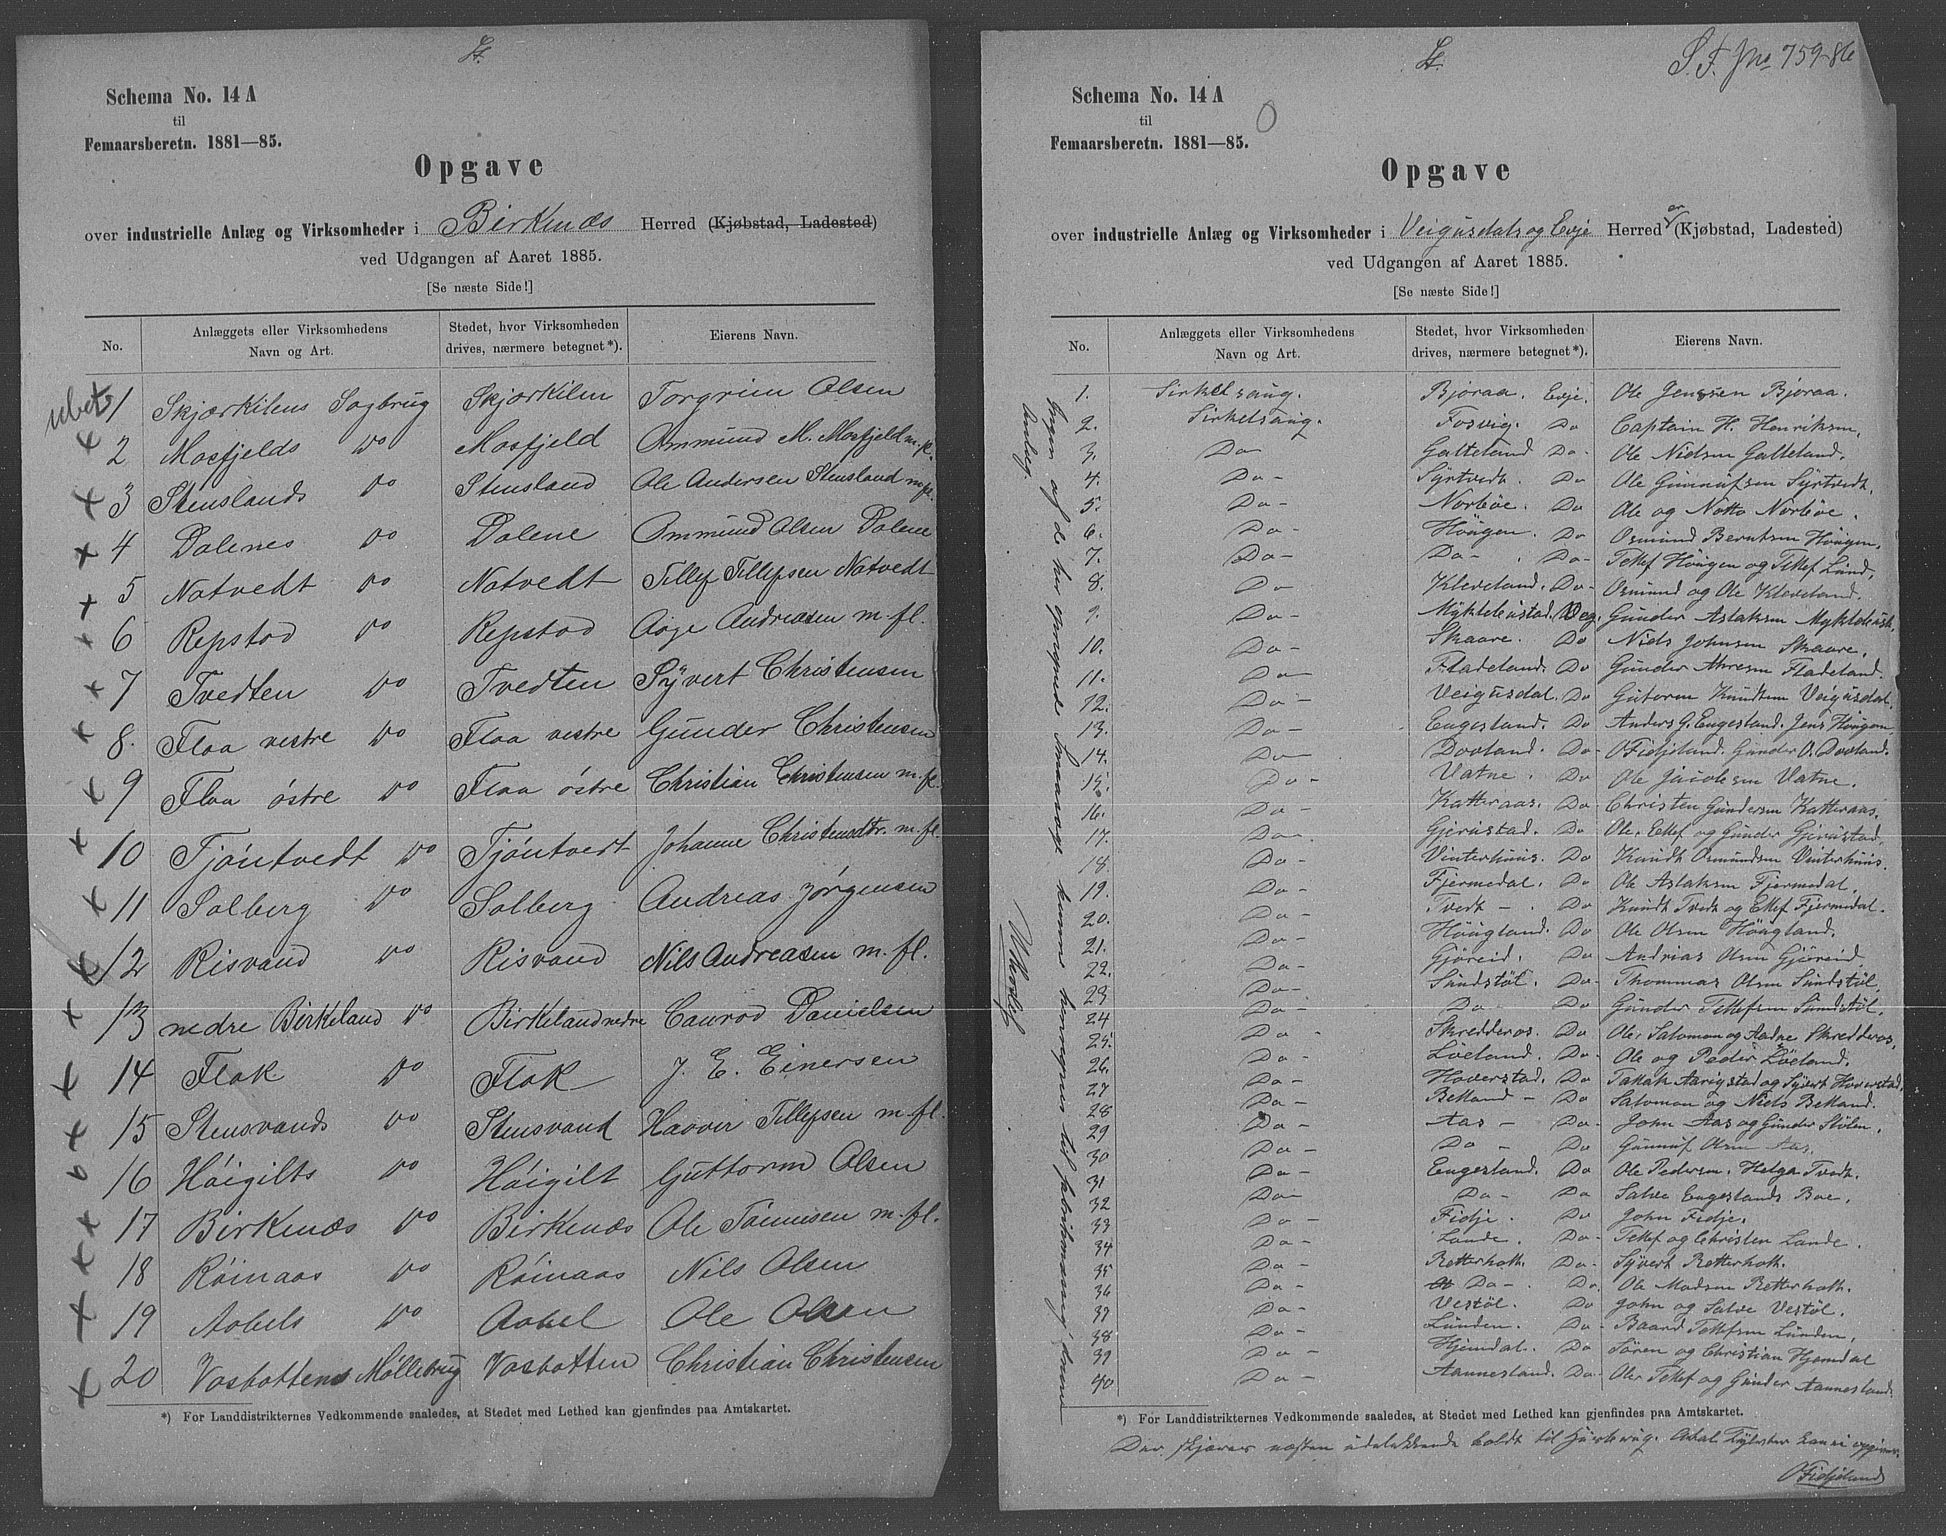 Schema No. 14 A
til
Femaarsberetn. 1881—85.
Opgave
over industrielle Anlæg og Virksomheder i Birkenæs Herred (Kjøbstad, Ladested)
ved Udgangen af Aaret 1885.
[Se næste Side!]
No. Anlæggets eller Virksomhedens Navn og Art. Stedet, hvor Virksomheden drives, nærmere betegnet*). Eierens Navn.
1 Skjærkilens Sagbrug Skjærkilen Torgrim Olsen
2 Mosfjelds do Mosfjeld Ommund M. Mosfjeld m. fl.
3 Stenslands do Stensland Ole Andersen Stensland m. fl.
4 Dalenes do Dalene Ommund Olsen Dalene
5 Natvedt do Natvedt Tillef Tillefsen Natvedt
6 Repstad do Repstad Aage Andreasen m. fl.
7 Tvedten do Tvedten Syvert Christensen
8. Flaa vestre do Flaa vestre Gunder Christensen
9 Flaa østre do Flaa østre Christian Christensen m. fl.
10 Tjöntvedt do Tjöntvedt Johanne Christensdtr. m. fl.
11 Solberg do Solberg Andreas Jörgensen
12 Risvand do Risvand Nils Andreasen m. fl.
13 nedre Birkeland do Birkeland nedre Conrad Danielsen
14 Flak do Flak J. E. Einersen
15 Stensvands do Stensvand Haaver Tillefsen m. fl.
16 Höigilts do Höigilt Guttorm Olsen
17 Birkenæs do Birkenæs Ole Tönnesen m. fl.
18 Röinaas do Röinaas Nils Olsen
19 Aabels do Aabel Ole Olsen
20 Vasbottens Møllebrug Vasbotten Christian Christensen
*) For Landdistrikternes Vedkommende saaledes, at Stedet med Lethed kan gjenfindes paa Amtskartet.
S. F. Jno 759-86
Schema No. 14 A
til
Femaarsberetn. 1881—85.
Opgave
over industrielle Anlæg og Virksomheder i Veigusdals og Evje Herreder (Kjøbstad, Ladested)
ved Udgangen af Aaret 1885.
[Se næste Side!]
No. Anlæggets eller Virksomhedens Navn og Art. Stedet, hvor Virksomheden drives, nærmere betegnet*). Eierens Navn.
1. Sirkelsaug. Bjoraa. Evje. Ole Jenssen Bjoraa.
2. Sirkelsaug. Fosvig. Do Captain H. Henriksen.
3. Do Galteland Do- Ole Nielsen Galteland.
4. Do- Syrtvedt. Do Ole Gunnufsen Syrtvedt.
5. Do- Norbøe. Do Ole og Notto Norbøe.
6. Do- Höugen. Do Osmund Berntsen Höugen.
7. Do- Do- Do- Tellef Höugen og Tellef Lund.
8. Do- Kleveland. Do- Osmund og Ole Kleveland.
9. Do- Myklebustad. Veg. Gunder Aslaksen Myklebust.
10. Do- Skaare. Do Niels Johnsen Skaare.
11. Do- Fladeland. Do Gunder Fladeland.
12. Do- Veigusdal. Do Gutorm Knudsen Veigusdal.
13. Do- Engesland. Do Anders G. Engesland. Jens Höugen
14. Do- Dovland. Do- O Fidjeland. Gunder O. Dovland.
15. Do- Vatne. Do Ole Jacobsen Vatne.
16. Do- Katteraas. Do- Christen Gundersen Katteraas.
17. Do- Gjerustad. Do Ole, Ellef og Gunder Gjerustad.
18 Do- Vinterhuus. Do Knudt Osmundsen Vinterhuus.
19. Do- Fjermedal. Do Ole Aslaksen Fjermedal.
20. Do- Tvedt - Do Knudt Tvedt og Ellef Fjermedal.
21. Do- Höugland. Do Ole Olsen Höugland.
22. Do- Gjöreid. Do Andrias Olsen Gjöreid
23 Do- Sundstöl. Do- Thommas Olsen Sundstöl.
24 Do- Do Do Gunder Tellefsen Sundstöl.
25. Do- Skredderas. Do Ole, Salomon og Aadne Skredderas.
26. Do- Löeland. Do- Ole og Peder Löeland.
27 Do- Hoverstad. Do og Syvert Hoverstad.
28 Do- Belland - Do Salomon og Niels Belland.
29 Do- Aas - Do- John Aas og Gunder Stölen.
30 Do- Do- Do Gunnuf Olsen Aas.
31 Do- Engesland. Do Ole Pedersen. Helga Tvedt.
32 Do- Do- Do Salve Engeslands Boe.
33 Do- Fidje. Do John Fidje.
34 Do- Lande. Do- Tellef og Christen Lande.
35 Do- Retterholt. Do- Syvert Retterholt.
36 Do- Do- Do Ole Madsen Retterholt.
37 Do- Vestöl. Do John og Salve Vestöl.
38 Do- Lunden. Do- Baard Tellefsen Lunden.
39 Do- Hjemdal. Do Sören og Christian Hjemdal
40 Do- Aannesland. Do- Ole, Tellef og Gunder Aannesland.
*) For Landdistrikternes Vedkommende saaledes, at Stedet med Lethed kan gjenfindes paa Amtskartet.
Der skjæres næsten udelukkende boldt til Huusbrug.
O Fidjeland
Ingen af de her opregnede Smaasauge kunne henregnes til fabrikmæssig drevne Anlæg.